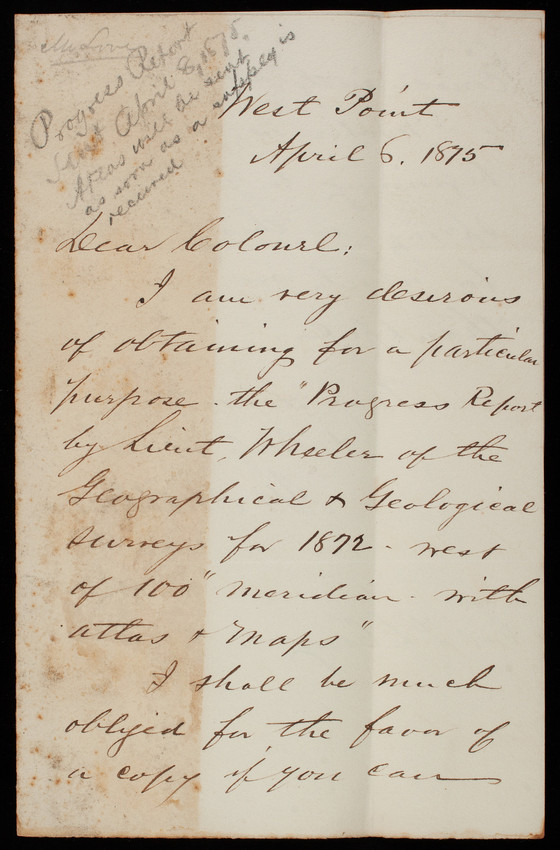 Progress Report
Sent April 8, 1875.
Atlas will be sent
as soon as a supply is
received
West Point
April 6. 1875
Dear Colonel:
I am very desirous
of obtaining for a particular
purpose - the "Progress Report
by Lieut. Wheeler of the
Geographical & Geological
surveys for 1872 - west
of 100" meridian - with
atlas & maps"
I shall be much
obliged for the favor of
a copy if you can